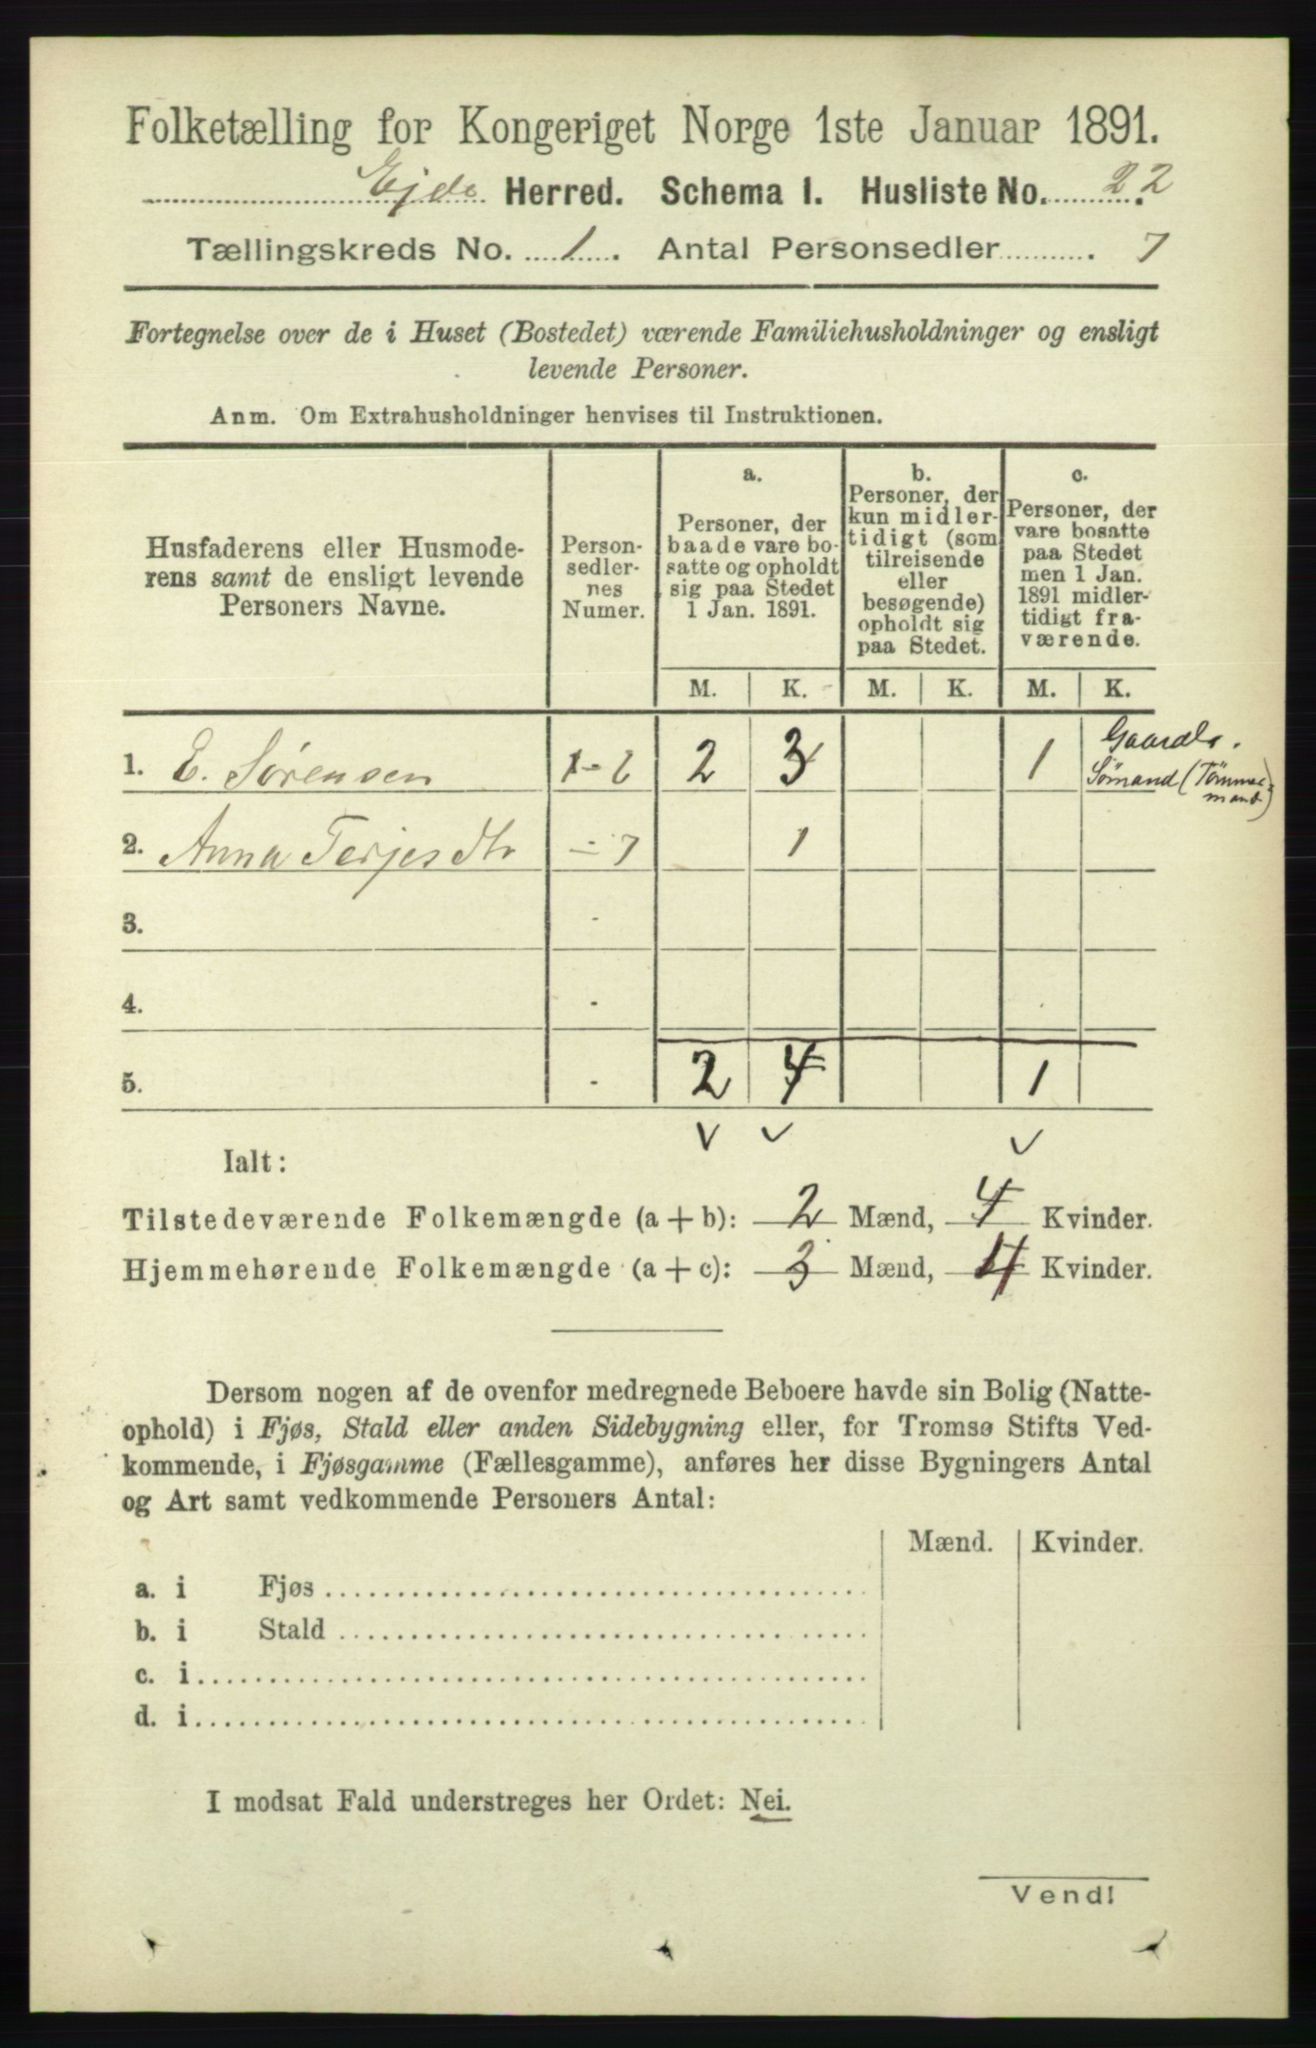 Folketælling for Kongeriget Norge 1ste Januar 1891.
Ejde Herred. Schema 1. Husliste No. 22
Tællingskreds No. 1. Antal Personsedler 7
Fortegnelse over de i Huset (Bostedet) værende Familiehusholdninger og ensligt
levende Personer.
Anm. Om Extrahusholdninger henvises til Instruktionen.
Husfaderens eller Husmode-
rens samt de ensligt levende
Personers Navne.
Person-
sedler-
nes
Numer.
a.
Personer, der
baade vare bo-
satte og opholdt
sig paa Stedet
1 Jan. 1891.
b.
Personer, der
kun midler-
tidigt (som
tilreisende
eller
besøgende)
opholdt sig
paa Stedet.
c.
Personer, der
vare bosatte
paa Stedet
men 1 Jan.
1891 midler-
tidigt fra-
værende.
M. K. M. K. M. K.
1. E. Sørensen 1-6 2 3 1 Gaardb.
Sømand (Tømmer=
mand)
2. Anna Terjesdtr - 7 1
3. -
4. -
5. - 2 4 1
Ialt:
Tilstedeværende Folkemængde (a + b): 2 Mænd, 4 Kvinder.
Hjemmehørende Folkemængde (a + c): 3 Mænd, 4 Kvinder.
Dersom nogen af de ovenfor medregnede Beboere havde sin Bolig (Natte-
ophold) i Fjøs, Stald eller anden Sidebygning eller, for Tromsø Stifts Ved-
kommende, i Fjøsgamme (Fællesgamme), anføres her disse Bygningers Antal
og Art samt vedkommende Personers Antal:
Mænd. Kvinder.
a. i Fjøs
b. i Stald
c. i
d. i
I modsat Fald understreges her Ordet: Nei.
Vend!